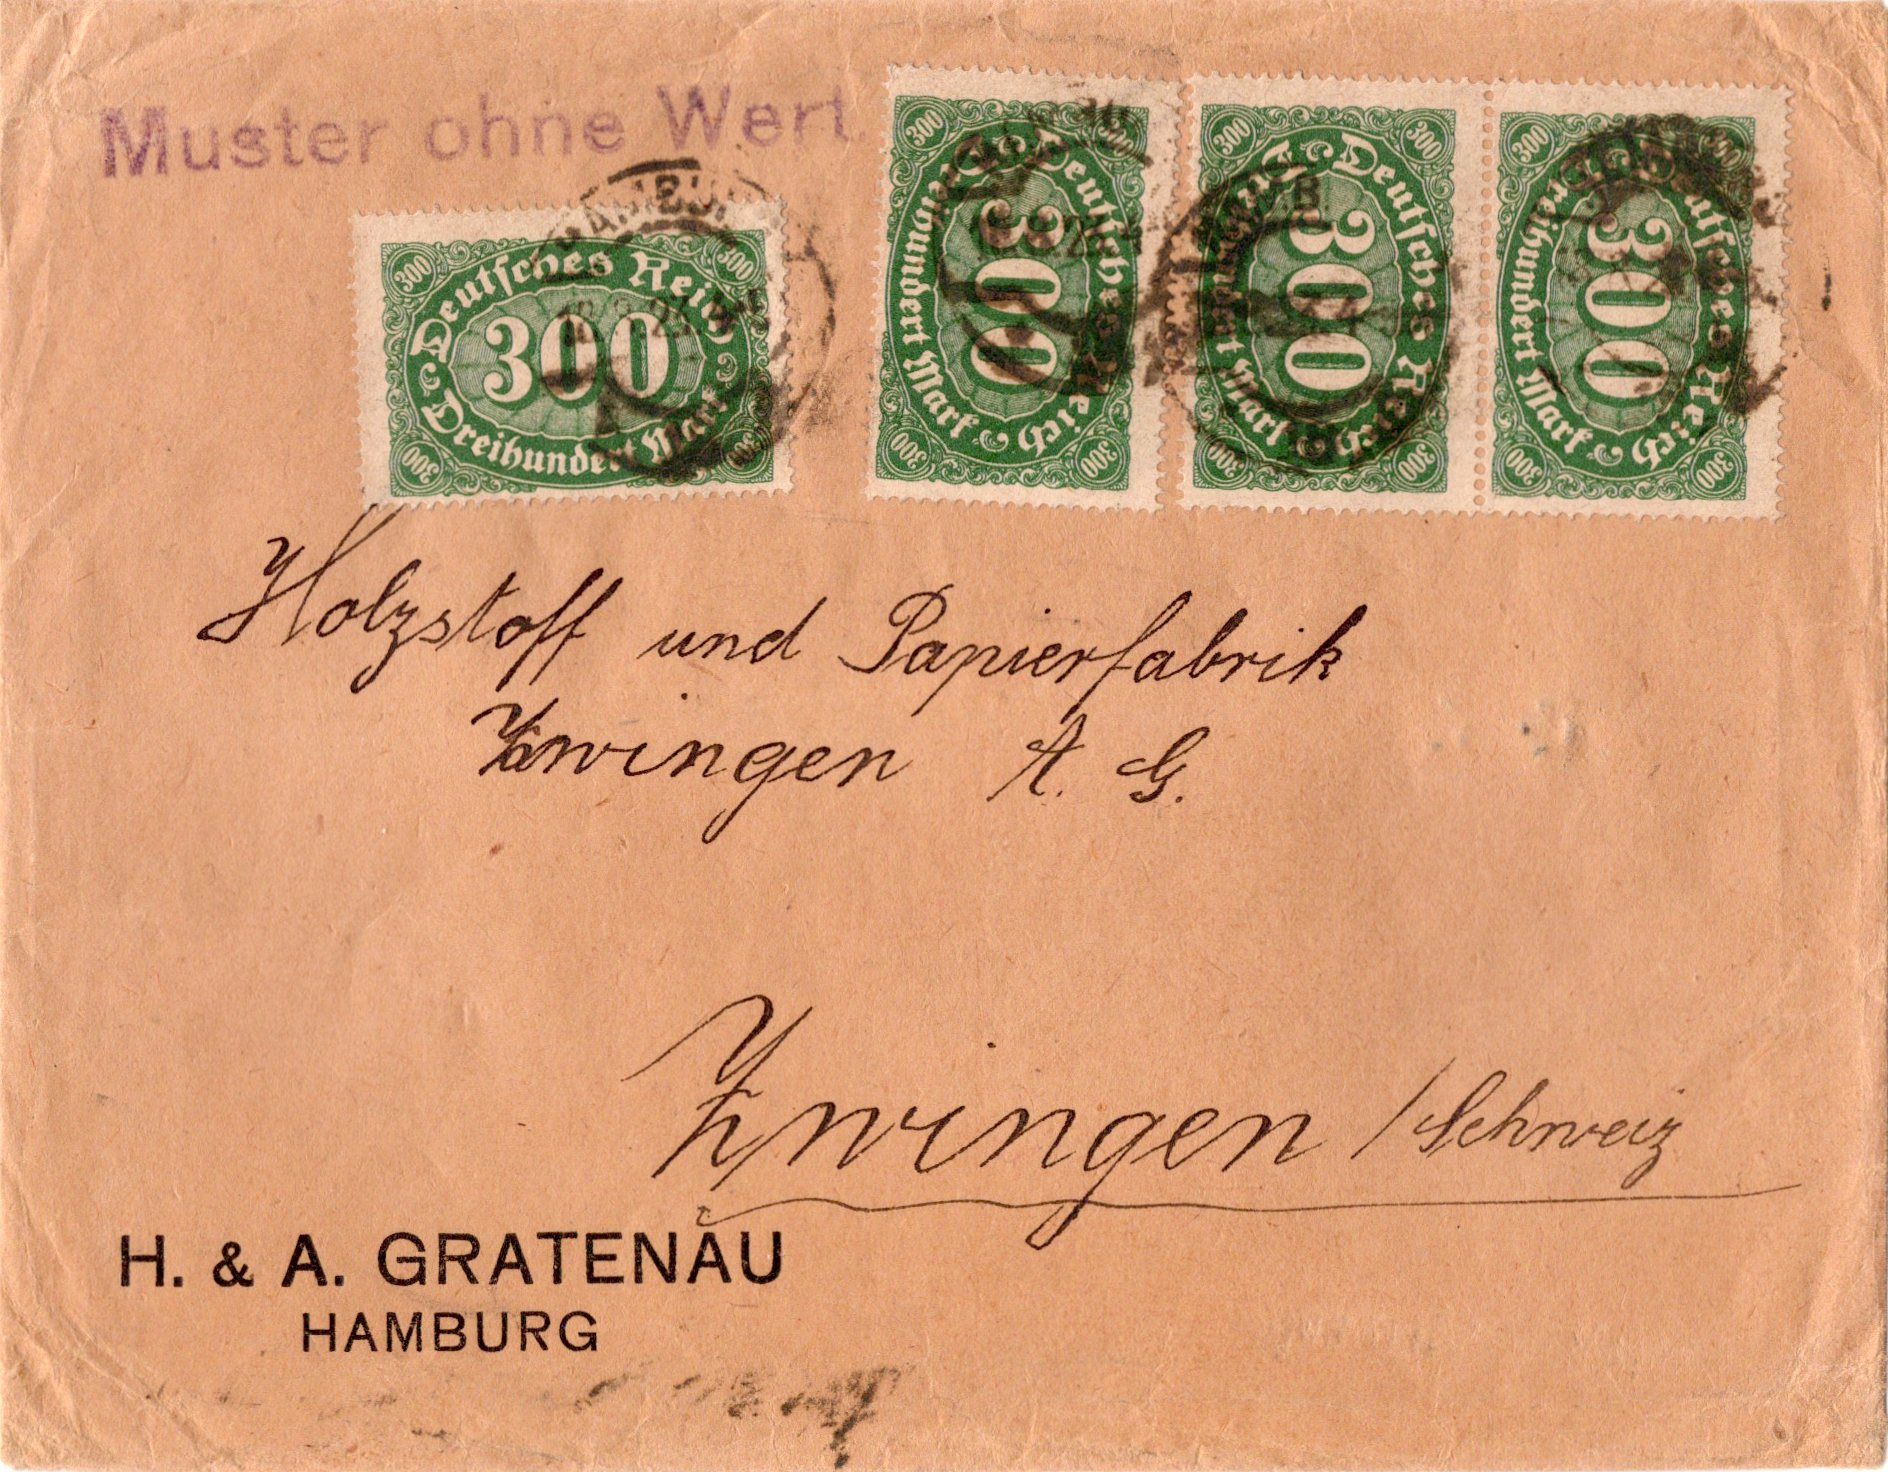 Muster ohne Wert.
300 300
Deutsches Reich
300
Dreihundert Mark
300 300
300 300
Deutsches Reich
300
Dreihundert Mark
300 300
300 300
Deutsches Reich
300
Dreihundert Mark
300 300
300 300
Deutsches Reich
300
Dreihundert Mark
300 300
Holzstoff und Papierfabrik
Zwingen A. G.
Zwingen / Schweiz
H. & A. GRATENAU
HAMBURG